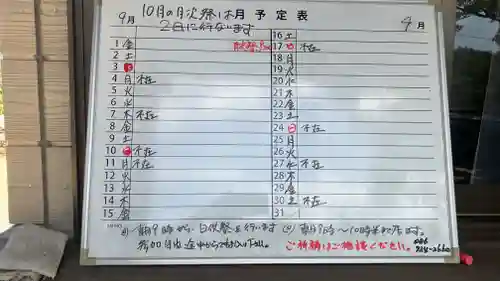 10月の月次祭は 月 予 定 表
9月
2日に行ないます
月
1 金
2 土
3 日
4 月 不在
5 火
6 水
7 木 不在
8 金
9 土
10 日 不在
11 月 不在
12 火
13 水
14 木
15 金
16 土
17 日 不在
18 月
19 火
20 水
21 木
22 金
23 土
24 日 不在
25 月
26 火
27 水 不在
28 木
29 金
30 土 不在
31
MEMO
朝9時から 月次祭を行います
参加自由 途中からでもよい
ご祈祷はご相談ください。